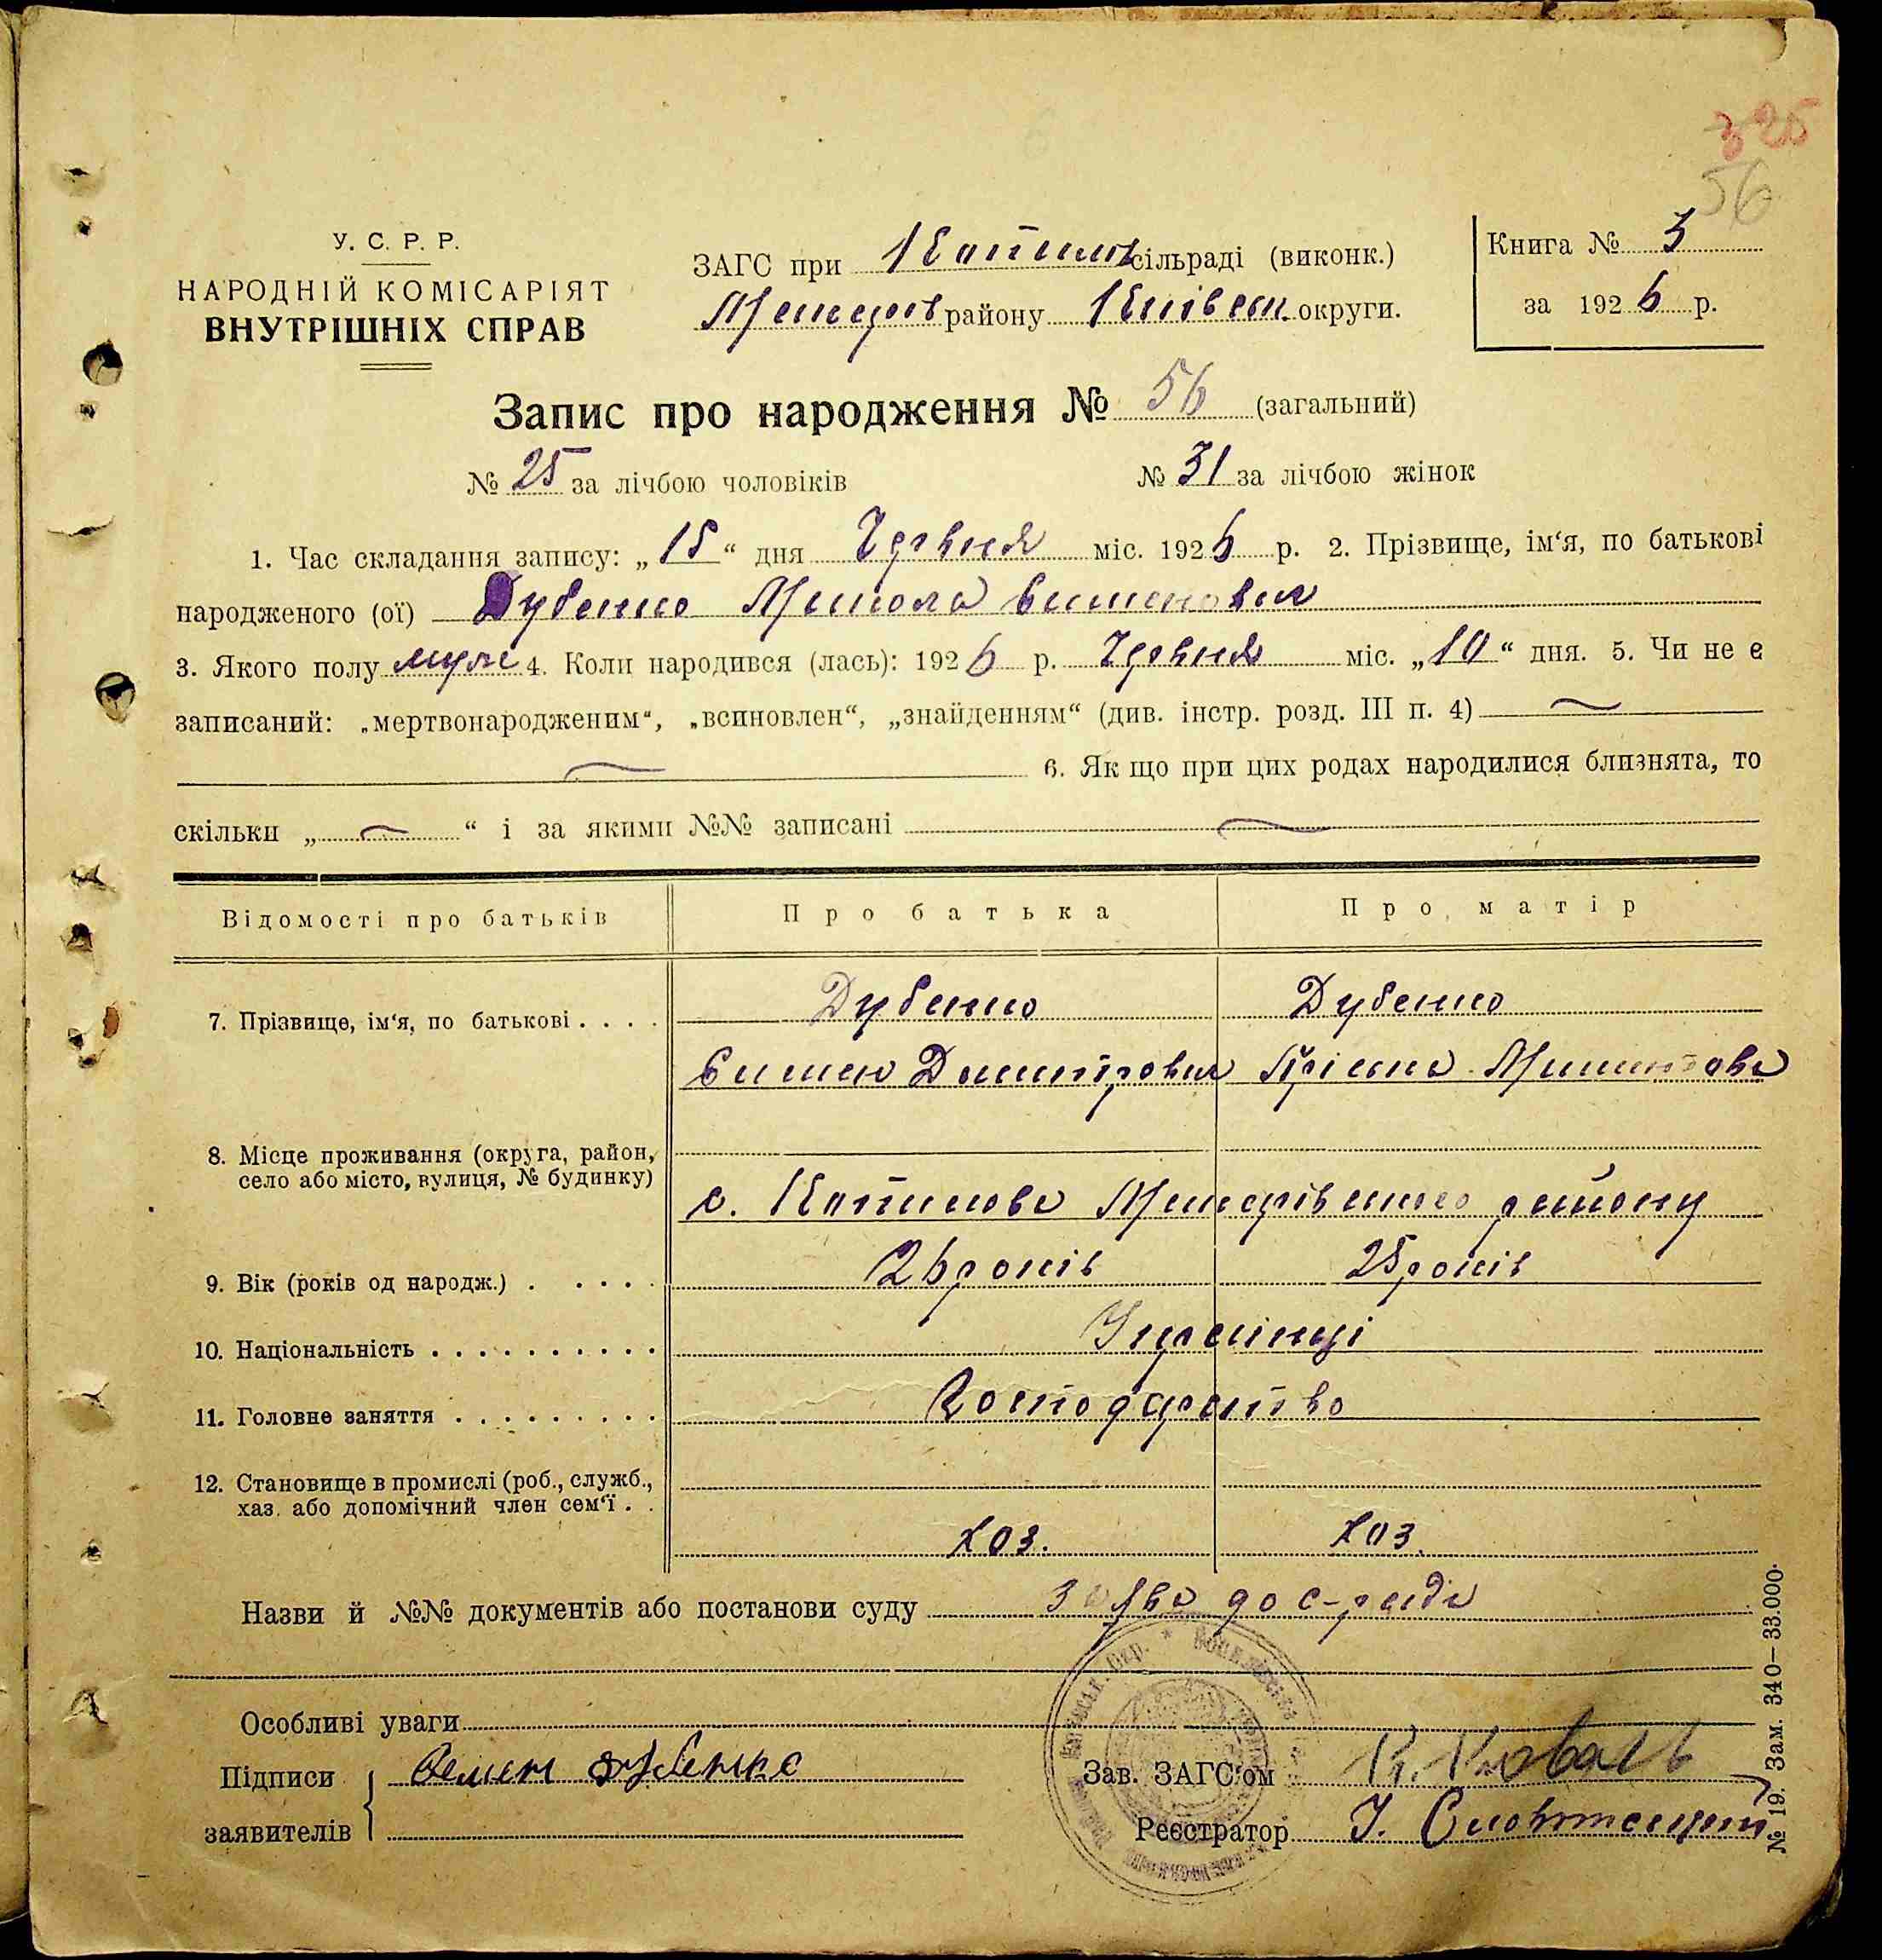 325
56
У. С. Р. Р.
НАРОДНІЙ КОМІСАРІЯТ
ВНУТРІШНІХ СПРАВ
ЗАГС при Копилов сільраді (виконк.)
Макарів району Київськ. округи.
Книга № 3
за 1926 р.
Запис про народження № 56 (загальний)
№ 25 за лічбою чоловіків № 31 за лічбою жінок
1. Час складання запису: „15“ дня Червня міс. 1926 р. 2. Прізвище, ім‘я, по батькові
народженого (ої) Дубенко Микола
3. Якого полу муж 4. Коли народився (лась): 1926 р. Червня міс. „10“ дня. 5. Чи не є
записаний: „мертвонародженим“, „всиновлен“, „знайденням“ (див. інстр. розд. III п. 4) —
— 6. Як що при цих родах народилися близнята, то
скільки „—“ і за якими №№ записані —
Відомості про батьків Про батька Про матір
7. Прізвище, ім‘я, по батькові . . . . Дубенко Дубенко
8. Місце проживання (округа, район,
село або місто, вулиця, № будинку)
с. Копилова Макарівського району
9. Вік (років од народж.) . . . . . 26 років 25 років
10. Національність . . . . . . . . . . Українці
11. Головне заняття . . . . . . . . . Господарство
12. Становище в промислі (роб., служб.,
хаз. або допомічний член сем‘ї . .
хоз. хоз.
Назви й №№ документів або постанови суду Заява до с-ради
Особливі уваги
Підписи Семен Дубенко
заявителів
Зав. ЗАГС‘ом К. Коваль
Реєстратор
№ 19. Зам. 340—33.000.